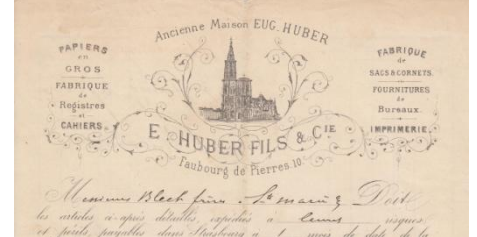 Ancienne Maison EUG. HUBER
PAPIERS
en
GROS
FABRIQUE
de
Registres
et
CAHIERS
FABRIQUE
de
SACS & CORNETS.
FOURNITURES
de
Bureaux.
IMPRIMERIE.
E. HUBER FILS & CIE
Faubourg de Pierres, 10.
Messieurs Blech frères Ste marie Doit
les articles ci-après détaillés, expédiés à leurs risques,
et périls, payables dans Strasbourg à mois de date de la